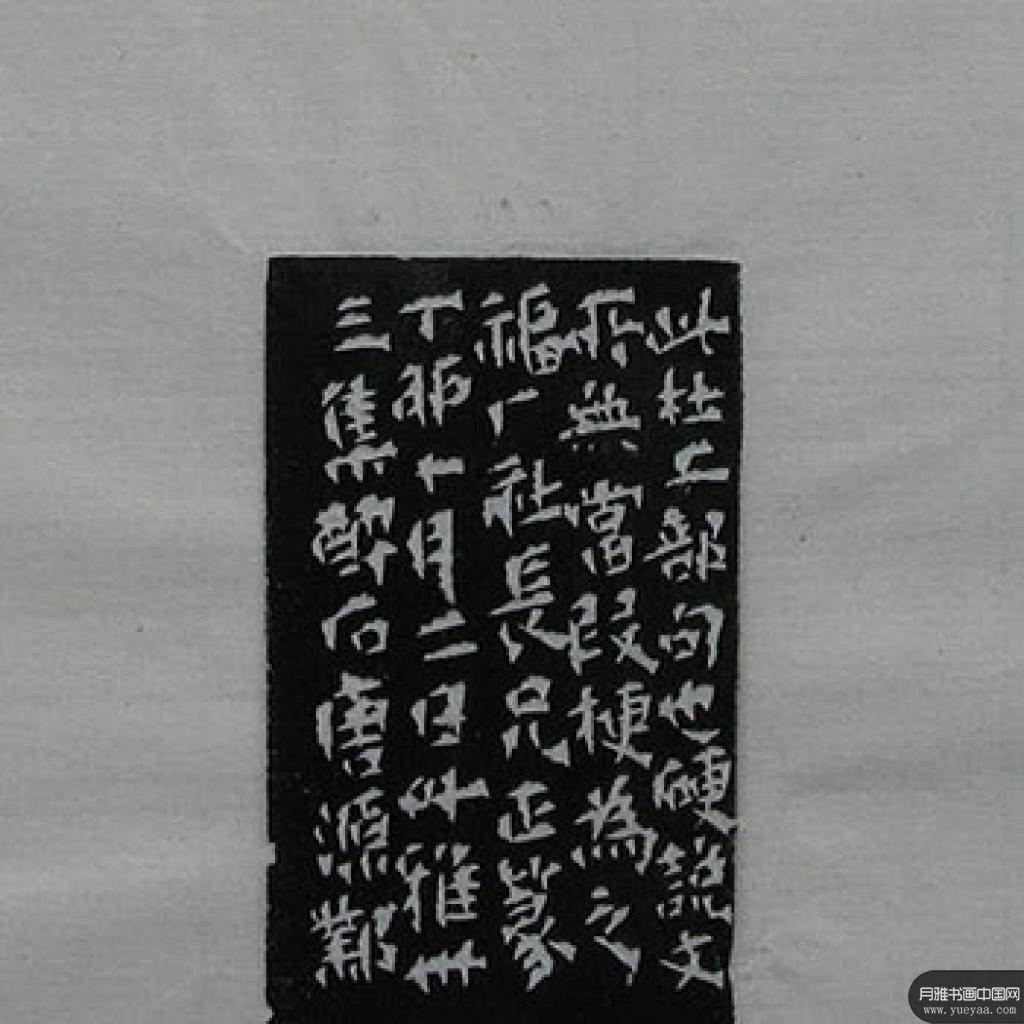 此杜工部句也硬說文
所無當叚梗為之
福厂社長兄正篆
丁卯十月二日雅卅
三集醉石唐源鄴
月雅书画中国网
www.yueyaa.com